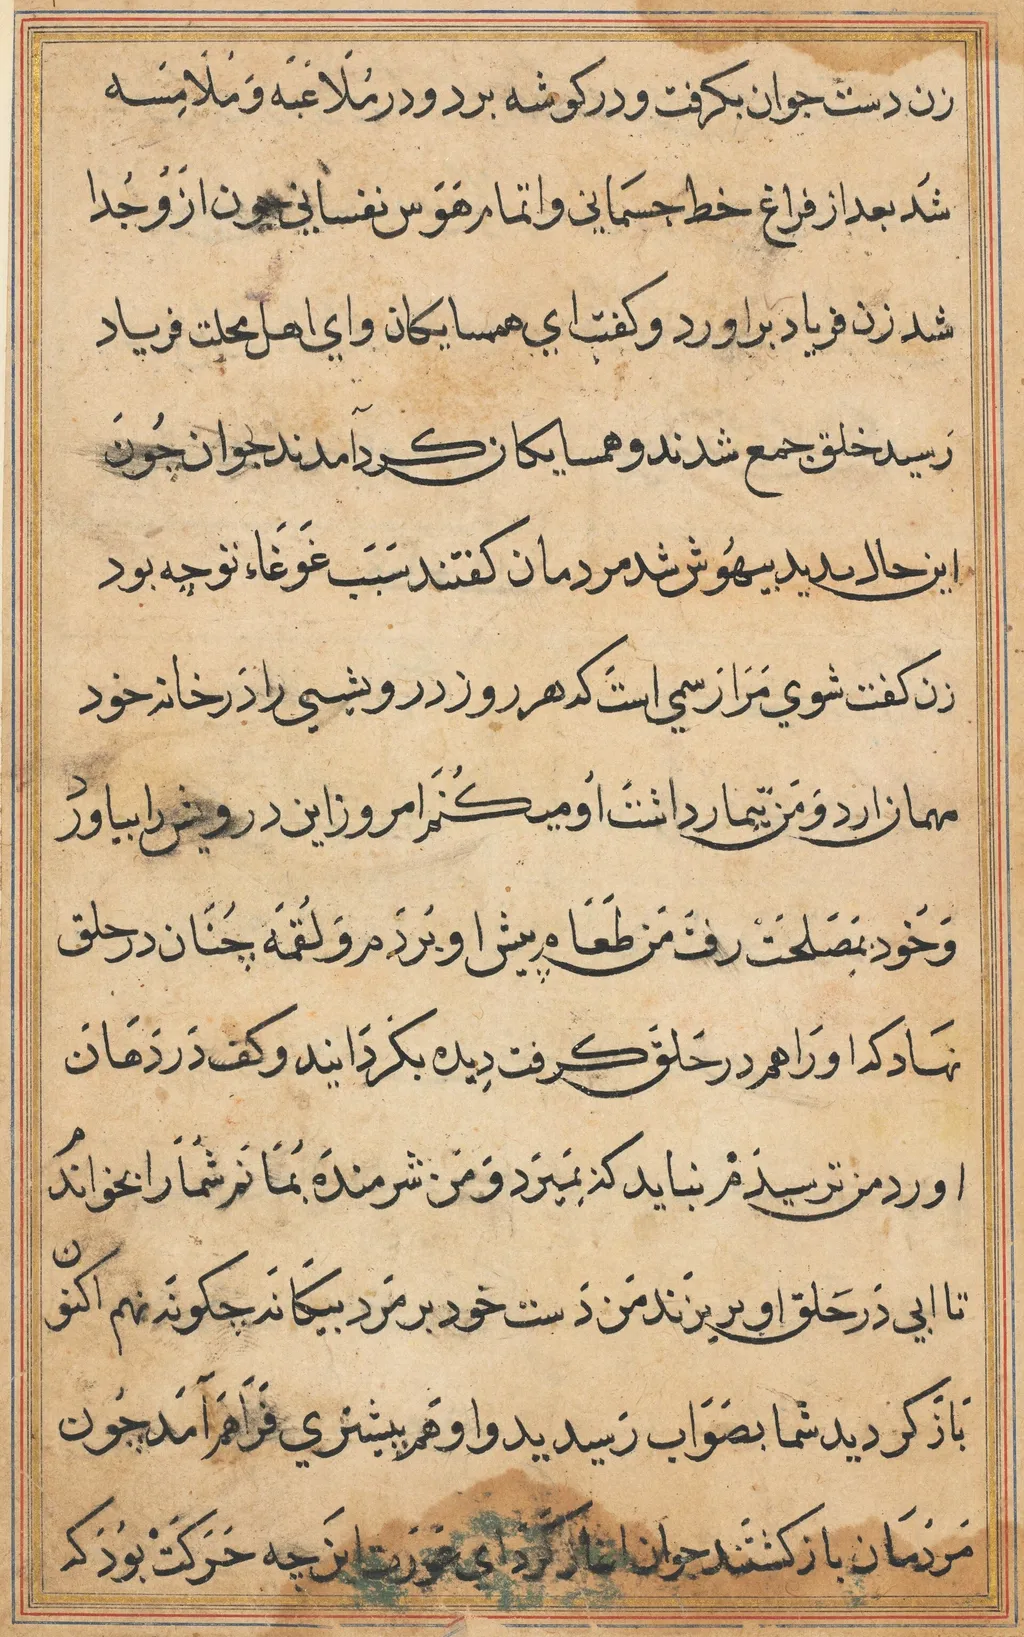 زن دست جوان بكرفت و در كوشه برد و در مُلَاعَبَه وَ مُلَامِسَه
شُد بعد از فراغ خط جسمَاني و اتمام هَوَس نفساني چون ازوُ جُدا
شد زن فرياد براورد و كفت اي همسايكان واي اهل محلت فرياد
رَسيد خلق جمع شدند و همسايكان كرد آمدند جوان چُونَ
اين حال بديد بيهُوش شد مردمان كفتند سَبَب غَوغَاء تو چه بود
زن كفت شوي مَرَا رسمي است كه هر روز درويشي را دَر خانه خود
مهمان ارد وَ مَن تيمار داشت اُو ميكُنَم امروز اين درويش را بياورد
وَ خُود بمَصَلحَتْ رفت مَن طَعَام پيش او بَردَم وَ لُقمَه چُنَان در حلق
نهَاد كه او رَا هم در حَلق كرفت دِيده بكَردَانيد و كف دَر دَهَان
اورد من ترسيدَمْ نبايد كه بِمَيرَد وَ مَن شرمندَه بُمَانَم شُمَا را بخواندم
تا ابي دَر حَلق او بريزَند مَن دَست خود بر مَرد بيكَانَه چكونَه نهم اكنون
بَازَ كرديد شما بصَوَاب رَسيديد و او هَم بيشتري فَرَاهَم آمَد چُون
مَردمَان باز كشتَند جوان اغاز كَرد اي عَورَت اين چه حَرَكَتْ بُودَ كه